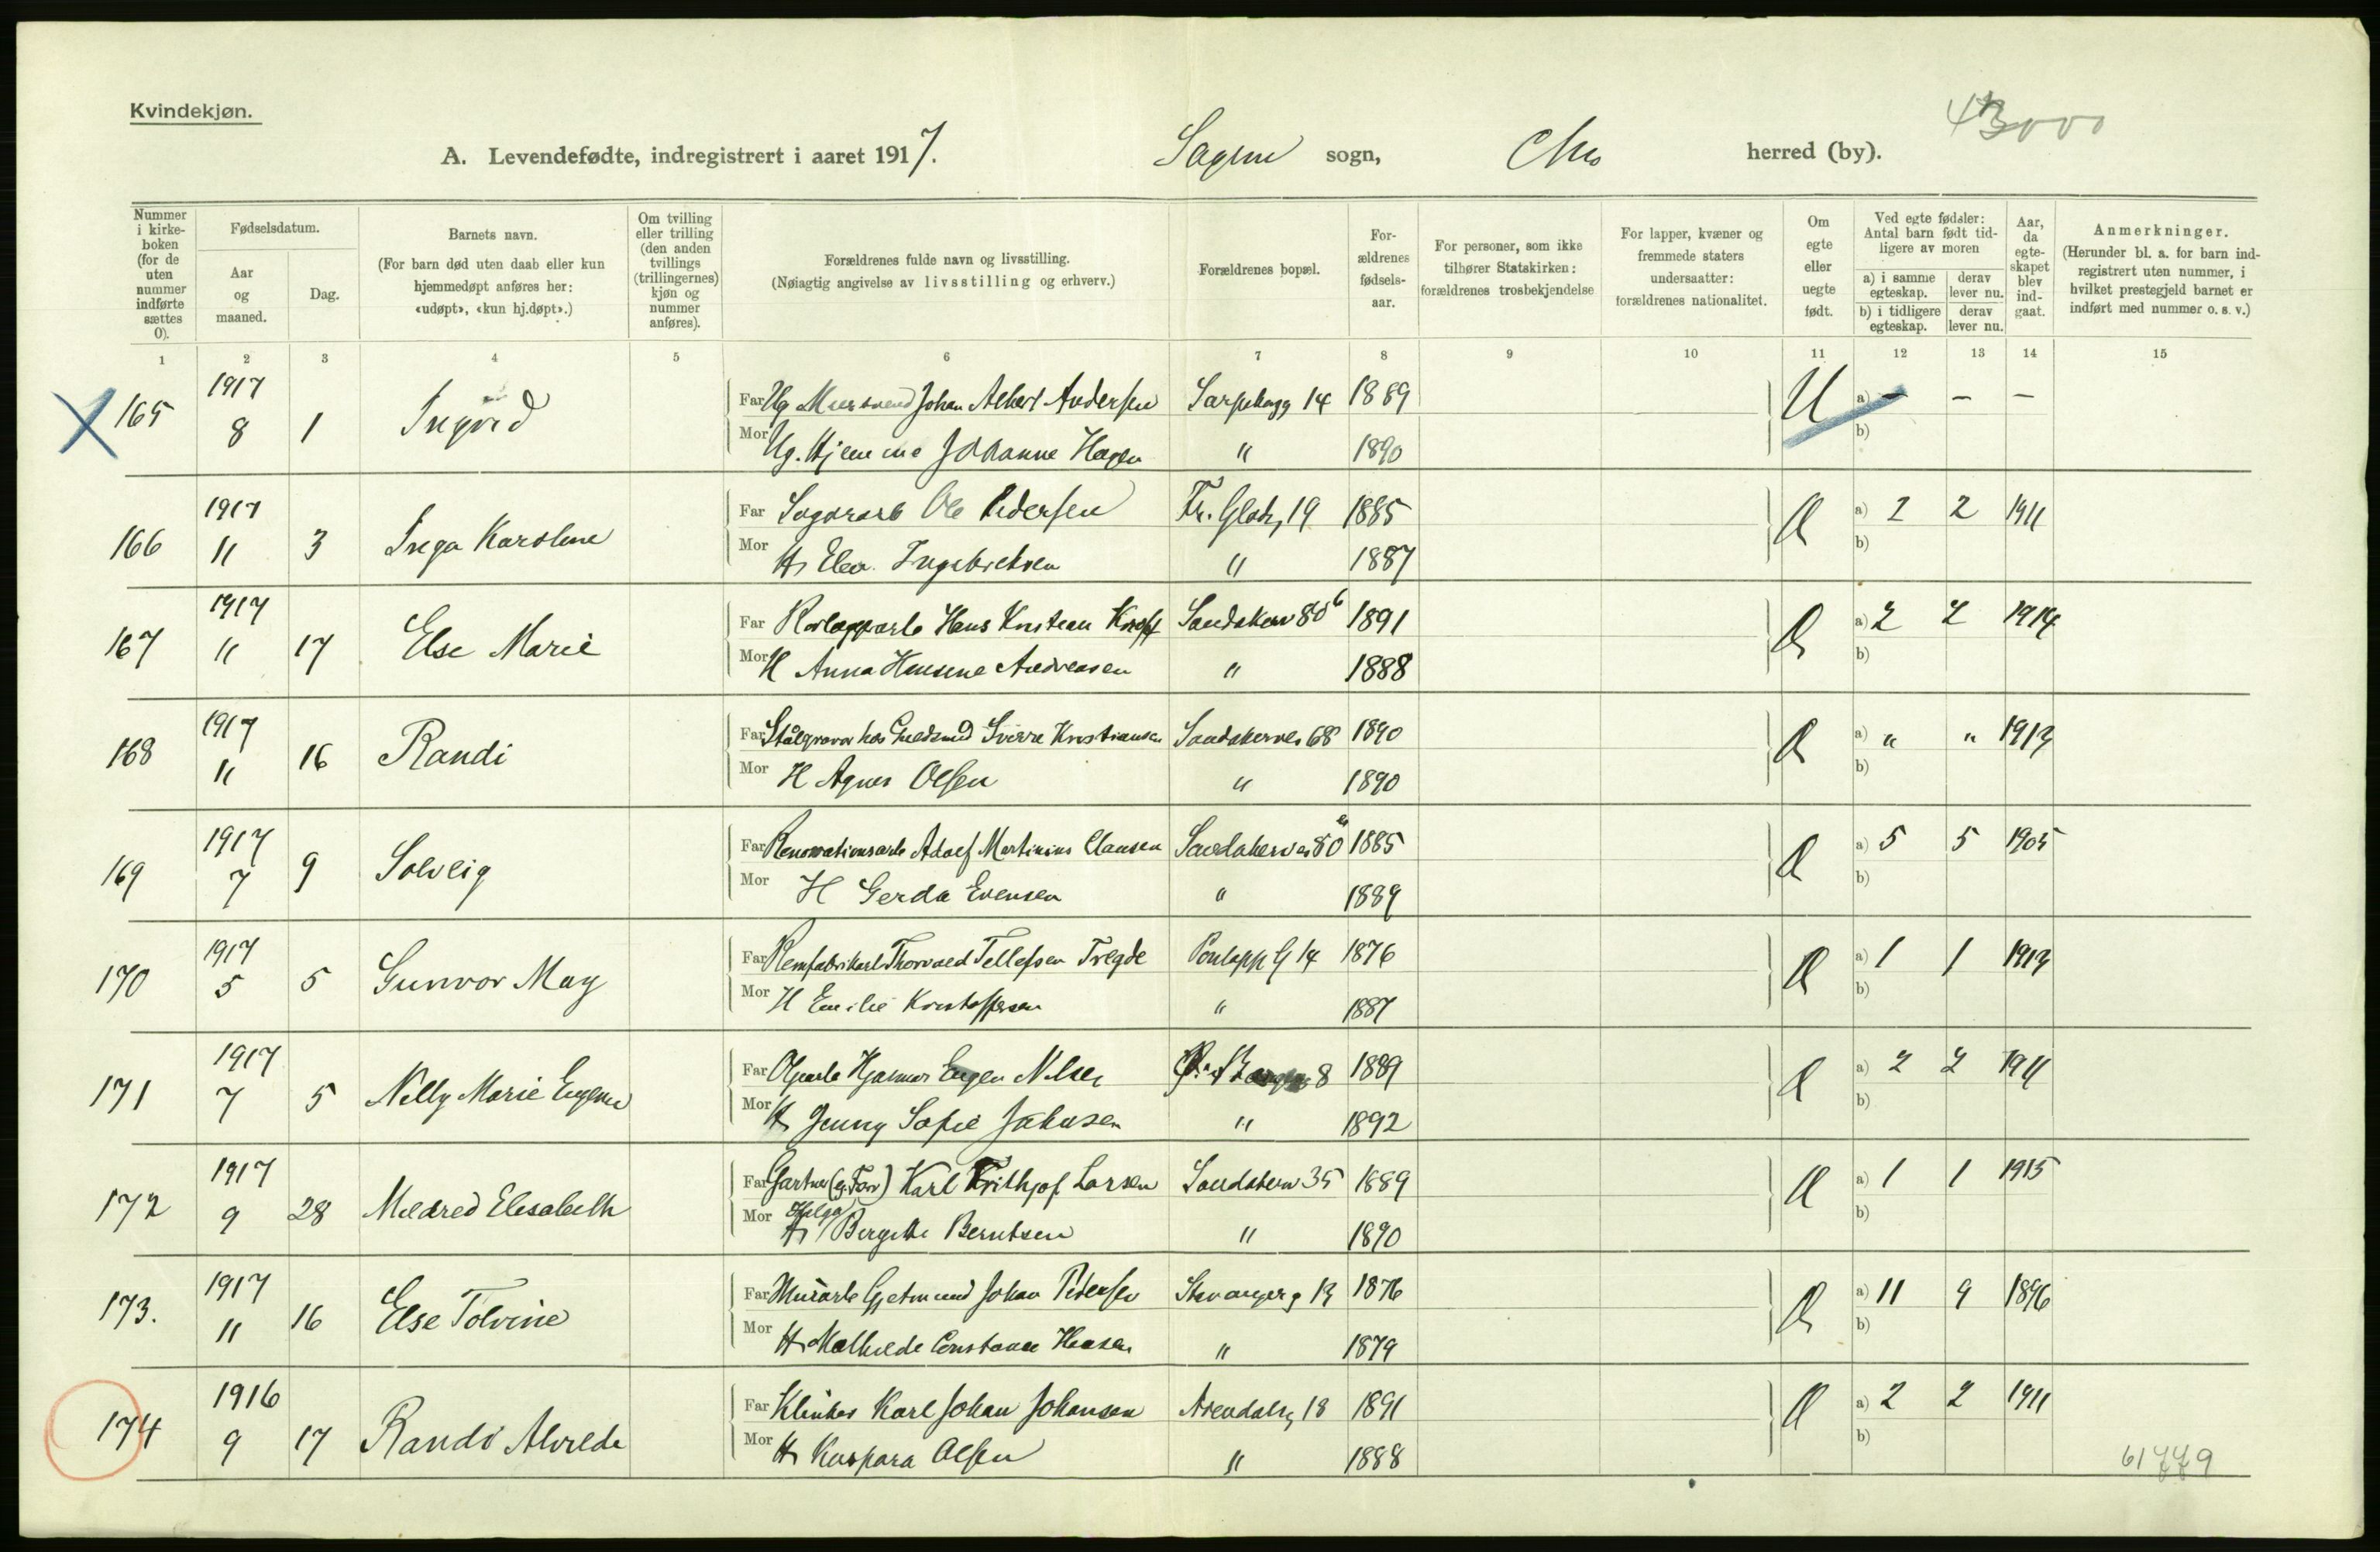 Kvindekjøn.
A. Levendefødte, indregistrert i aaret 1917. Sagene sogn, Chra herred (by). 43000
Nummer i kirkeboken (for de uten nummer indførte sættes 0).
Fødselsdatum.
Aar og maaned.
Dag.
Barnets navn.
(For barn død uten daab eller kun hjemmedøpt anføres her: «udøpt», «kun hj.døpt».)
Om tvilling eller trilling (den anden tvillings (trillingernes) kjøn og nummer anføres).
Forældrenes fulde navn og livsstilling.
(Nøiagtig angivelse av livsstilling og erhverv.)
Forældrenes bopæl.
Forældrenes fødselsaar.
For personer, som ikke tilhører Statskirken: forældrenes trosbekjendelse
For lapper, kvæner og fremmede staters undersaatter: forældrenes nationalitet.
Om egte eller uegte født.
Ved egte fødsler: Antal barn født tidligere av moren
a) i samme egteskap. derav lever nu.
b) i tidligere egteskap. derav lever nu.
Aar, da egteskapet blev indgaat.
Anmerkninger.
(Herunder bl. a. for barn indregistrert uten nummer, i hvilket prestegjeld barnet er indført med nummer o. s. v.)
1 2 3 4 5 6 7 8 9 10 11 12 13 14 15
165 1917 8 1 Ingrid Far Ug Mursvend Johan Albert Andersen Sarpsborgg 14 1889 U a) – – –
Mor Ug. Hjemme Johanne Hagen " 1890 b)
166 1917 11 3 Inga Karoline Far Ole Pedersen 19 1885 a) 2 2 1911
Mor H Elea Ingebretsen " 1887 b)
167 1917 11 17 Else Marie Far Hans Kristian Sandakerv 80 b 1891 a) 2 2 1914
Mor H Anna Hansine Andreasen " 1888 b)
168 1917 11 16 Randi Far Stålgravør hos Guldsmed Sverre Kristiansen Sandakervei 68 1890 a) " " 1913
Mor H Agnes Olsen " 1890 b)
169 1917 7 9 Solveig Far Renovationsarb Adolf Martinius Clausen Sandakervei 80 1885 a) 5 5 1905
Mor H Gerda Evensen " 1889 b)
170 1917 5 5 Gunvor May Far Remfabrikarb Thorvald Tellefsen Tregde Pontopp G 14 1876 a) 1 1 1913
Mor H Emilie Kristoffersen " 1887 b)
171 1917 7 5 Nelly Marie Eugenie Far Hjalmar Eugen Nilsen 8 1889 a) 2 2 1911
Mor H Jenny Sofie Johnsen " 1892 b)
172 1917 9 28 Mildred Elisabeth Far Gartner (g. Forr) Karl Frithjof Larsen Sandakerv 35 1889 a) 1 1 1915
Mor H Helga Birgitte Berntsen " 1890 b)
173. 1917 11 16 Else Tolvine Far Murarb Gjetmund Johan Pedersen Stavangerg 13 1876 a) 11 9 1896
Mor H Mathilde Constance Hansen " 1879 b)
174 1916 9 17 Randi Alvilde Far Klinker Karl Johan Johansen Arendalsg 18 1891 a) 2 2 1911
Mor H Kaspara Olsen " 1888 b)
61779